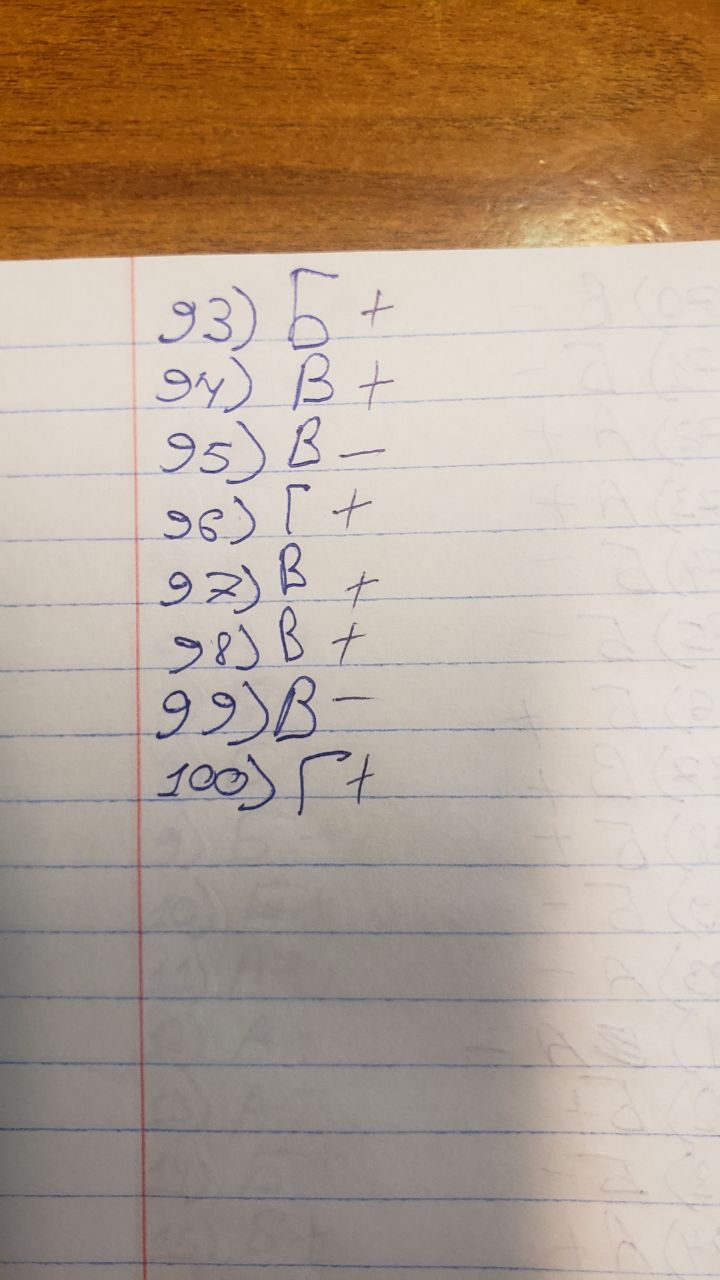 93) Б +
94) В +
95) В –
96) Г +
97) В +
98) В +
99) В –
100) Г +